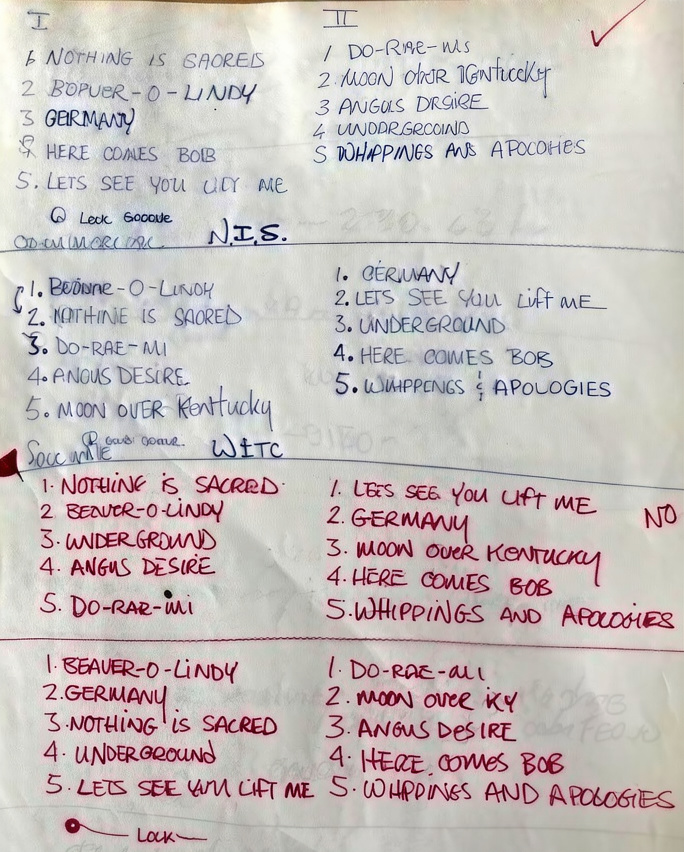 I
1 NOTHING IS SACRED
2 BEAVER-O-LINDY
3 GERMANY
4 HERE COMES BOB
5. LETS SEE YOU LIFT ME
N.I.S.
II
1 DO-RAE-MI
2. MOON OVER KENTUCKY
3 ANGUS DESIRE
4 UNDERGROUND
5 WHIPPINGS AND APOLOGIES
1. BEAVER-O-LINDY
2. NOTHING IS SACRED
3. DO-RAE-MI
4. ANGUS DESIRE
5. MOON OVER KENTUCKY
WITC
1. GERMANY
2. LETS SEE YOU LIFT ME
3. UNDERGROUND
4. HERE COMES BOB
5. WHIPPINGS & APOLOGIES
1. NOTHING IS SACRED
2 BEAVER-O-LINDY
3. UNDERGROUND
4. ANGUS DESIRE
5. DO-RAE-MI
1. LETS SEE YOU LIFT ME
2. GERMANY
3. MOON OVER KENTUCKY
4. HERE COMES BOB
5. WHIPPINGS AND APOLOGIES
NO
1. BEAVER-O-LINDY
2. GERMANY
3. NOTHING IS SACRED
4. UNDERGROUND
5. LETS SEE YOU LIFT ME
1. DO-RAE-MI
2. MOON OVER KY
3. ANGUS DESIRE
4. HERE COMES BOB
5. WHIPPINGS AND APOLOGIES
LOCK